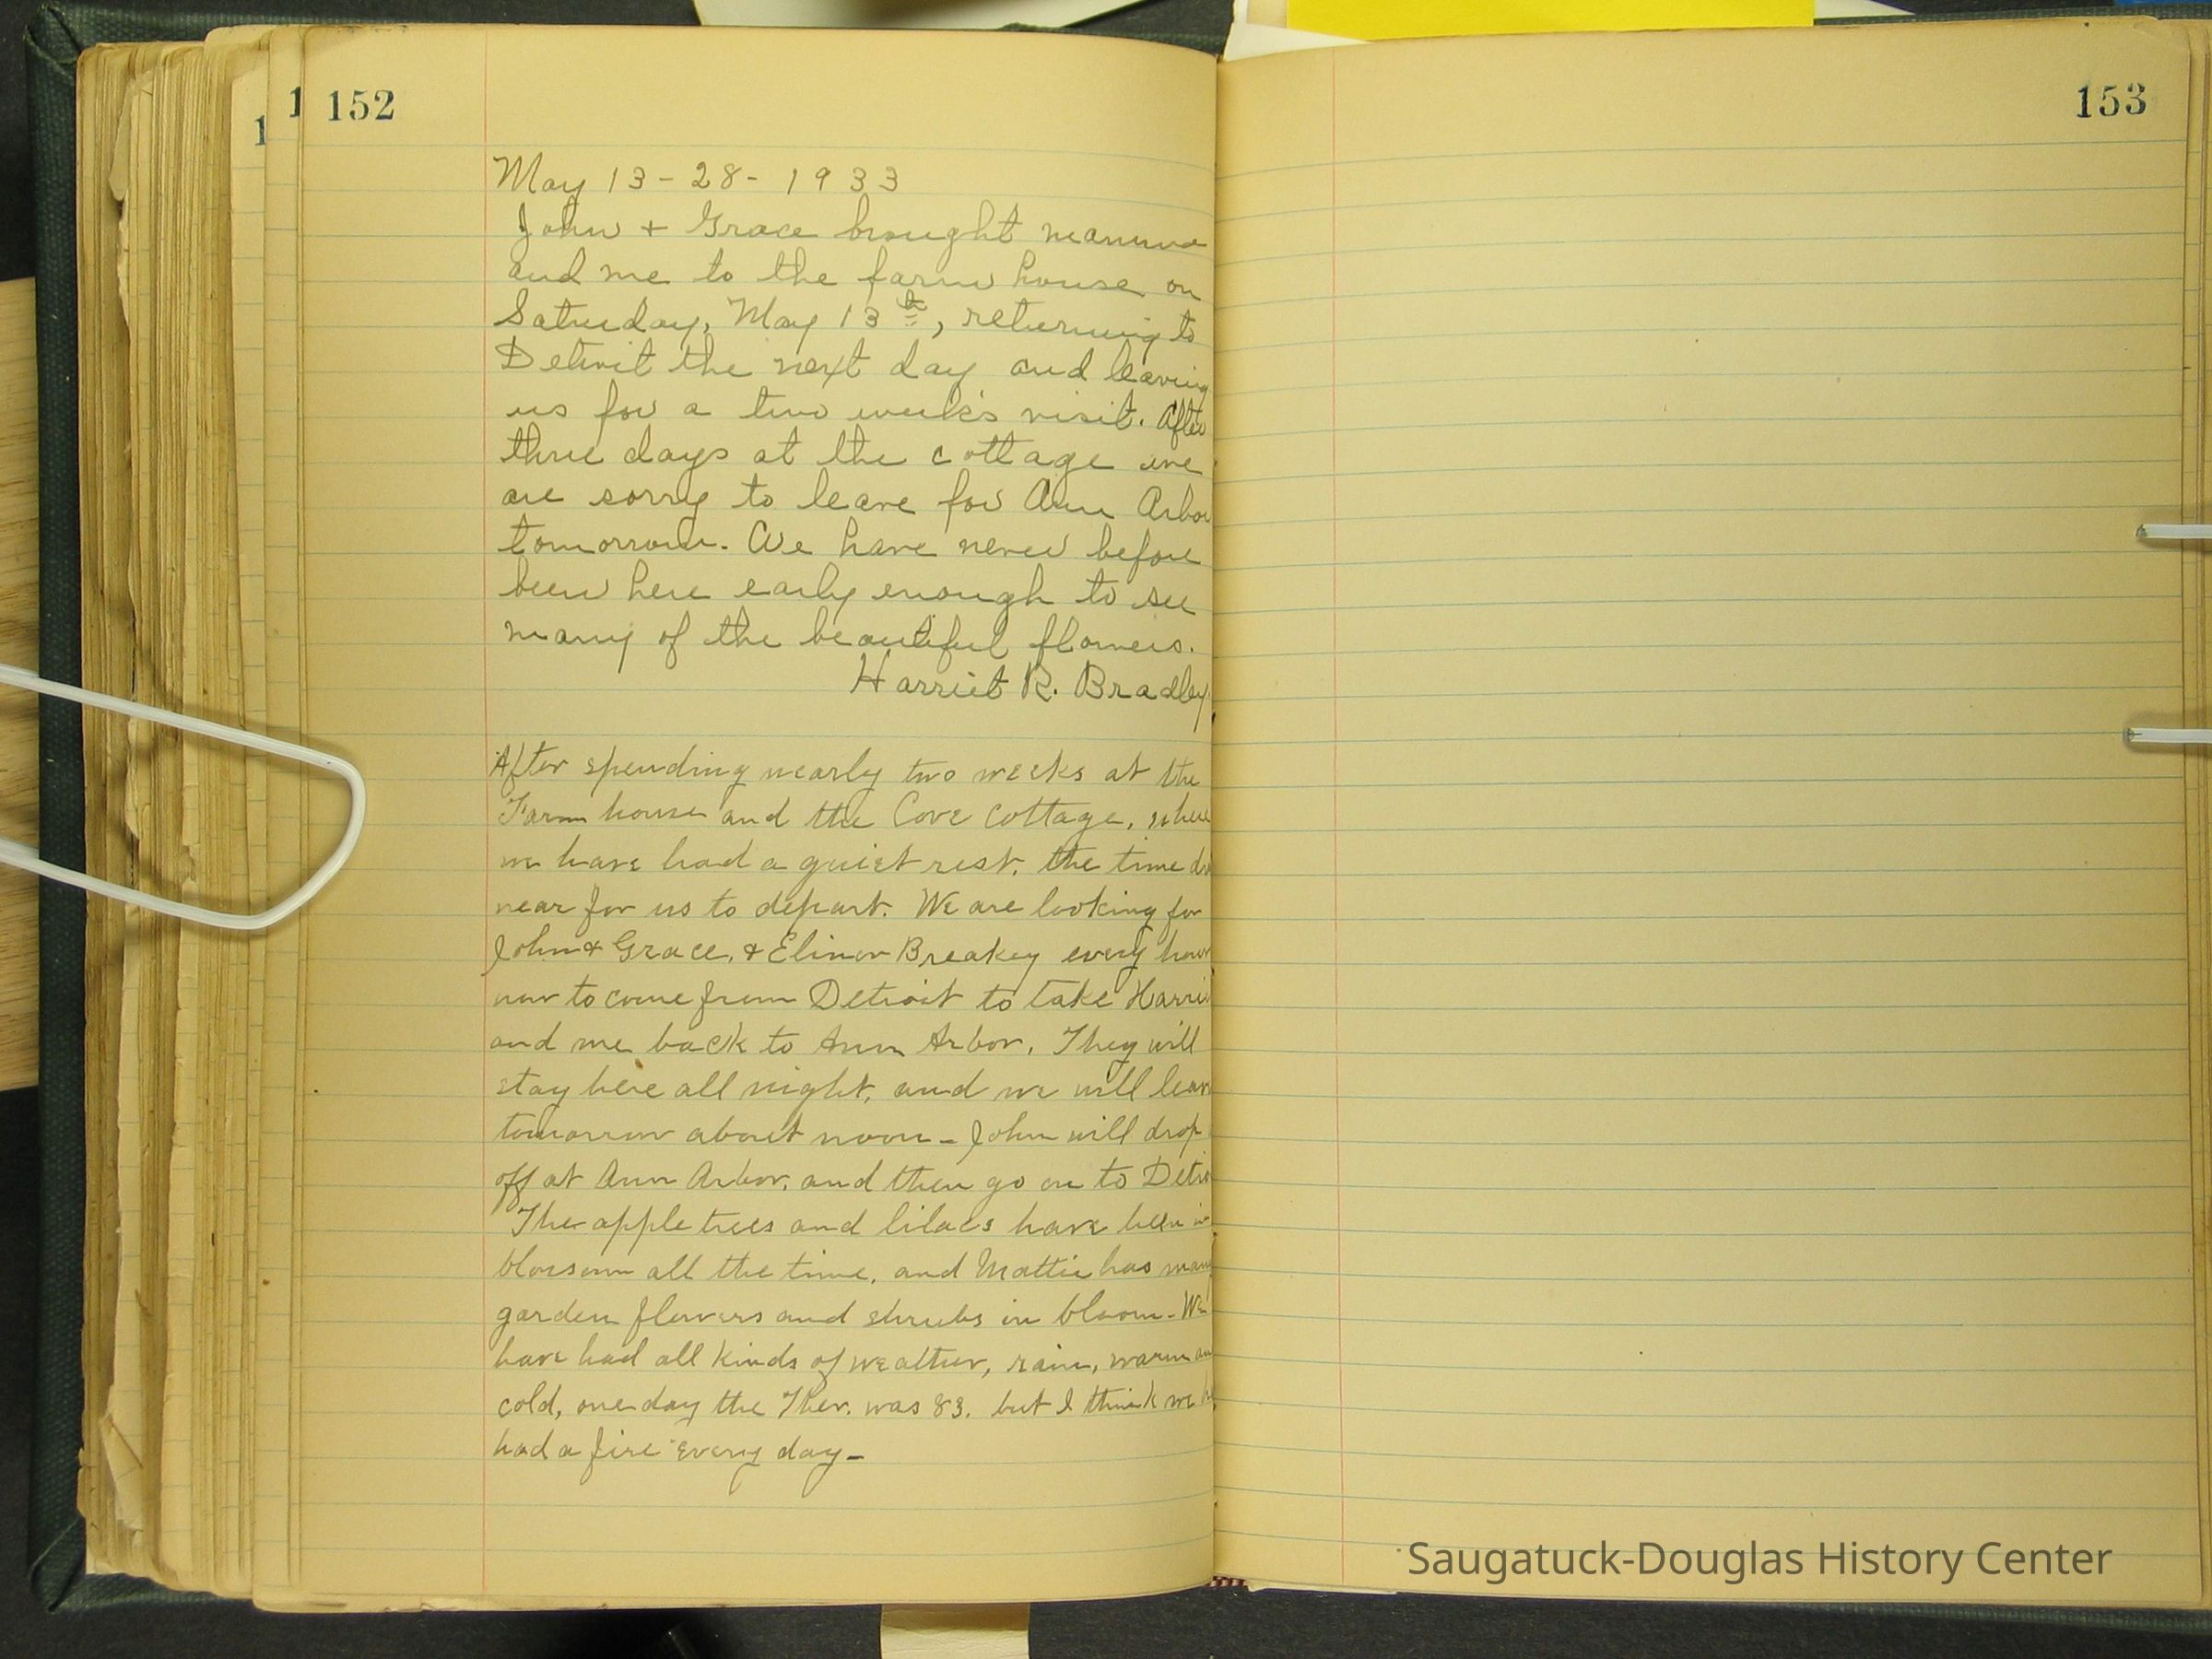 1
1
152
May 13 - 28 - 1933
John + Grace brought mamma
and me to the farm house on
Saturday, May 13th, returning to
Detroit the next day and leaving
us for a two week's visit. After
three days at the cottage we
are sorry to leave for Ann Arbor
tomorrow. We have never before
been here early enough to see
many of the beautiful flowers.
Harriet R. Bradley
After spending nearly two weeks at the
Farm house and the Cove Cottage, where
we have had a quiet rest, the time
near for us to depart. We are looking for
John + Grace, + Elinor Breakey every hour
now to come from Detroit to take Harri
and me back to Ann Arbor. They will
stay here all night, and we will leav
tomorrow about noon - John will drop
off at Ann Arbor, and then go on to Detro
The apple trees and lilacs have been in
blossom all the time, and Mattie has many
garden flowers and shrubs in bloom - We
have had all kinds of weather, rain, warm an
cold, one day the Ther. was 83. but I think we
had a fire every day -
153
Saugatuck-Douglas History Center